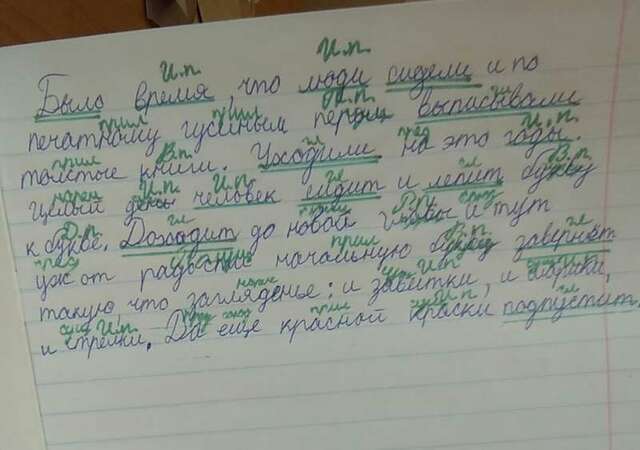 И.п. И.п.
Было время, что люди сидели и по
прил прил В.п.
печатному гусиным пером выписывали
прил В.п. гл пред И.п.
толстые книги. Уходили на это годы.
нареч И.п. И.п. гл гл В.п.
Целый день человек сидит и лепит букву
Д.п. гл
к букве. Доходит до новой главы и тут
прил В.п. гл
уж от радости начальную букву завернёт
такую, что загляденье: и завитки, и шарики,
сущ И.п. прил сущ И.п. гл
и стрелки. Да еще красной краски подпустит.